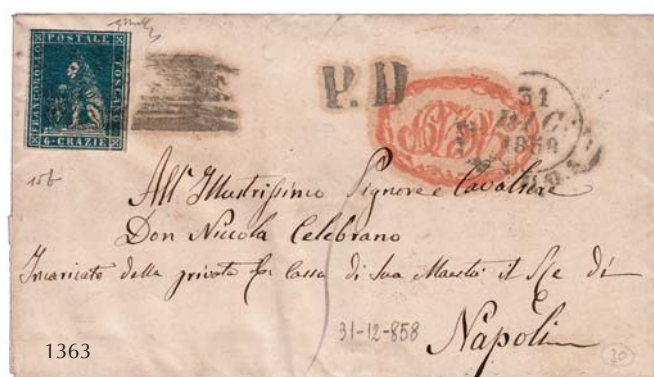 FRANCOBOLLO POSTALE TOSCANO
6 CRAZIE
P. D
31
DIC
1858
15b
All' Illustrissimo Signore e Cavaliere
Don Niccola Celebrano
Incaricato della privata Cassa di Sua Maestà il Re di
Napoli
31-12-858
1363
30